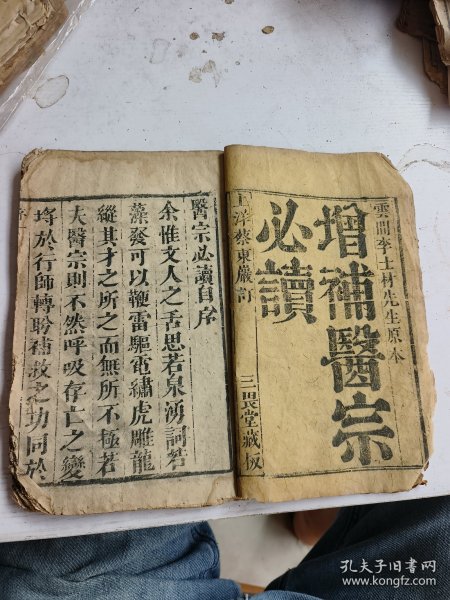 雲間李士材先生原本
增補醫宗
必讀
上洋蔡東巖訂
三畏堂藏板
醫宗必讀自序
余惟文人之舌思若泉湧詞若
藻發可以鞭雷驅電繡虎雕龍
縱其才之所之而無所不極若
夫醫宗則不然呼吸存亡之變
埒於行師轉盻補救之功同於
孔夫子旧书网
www.kongfz.com